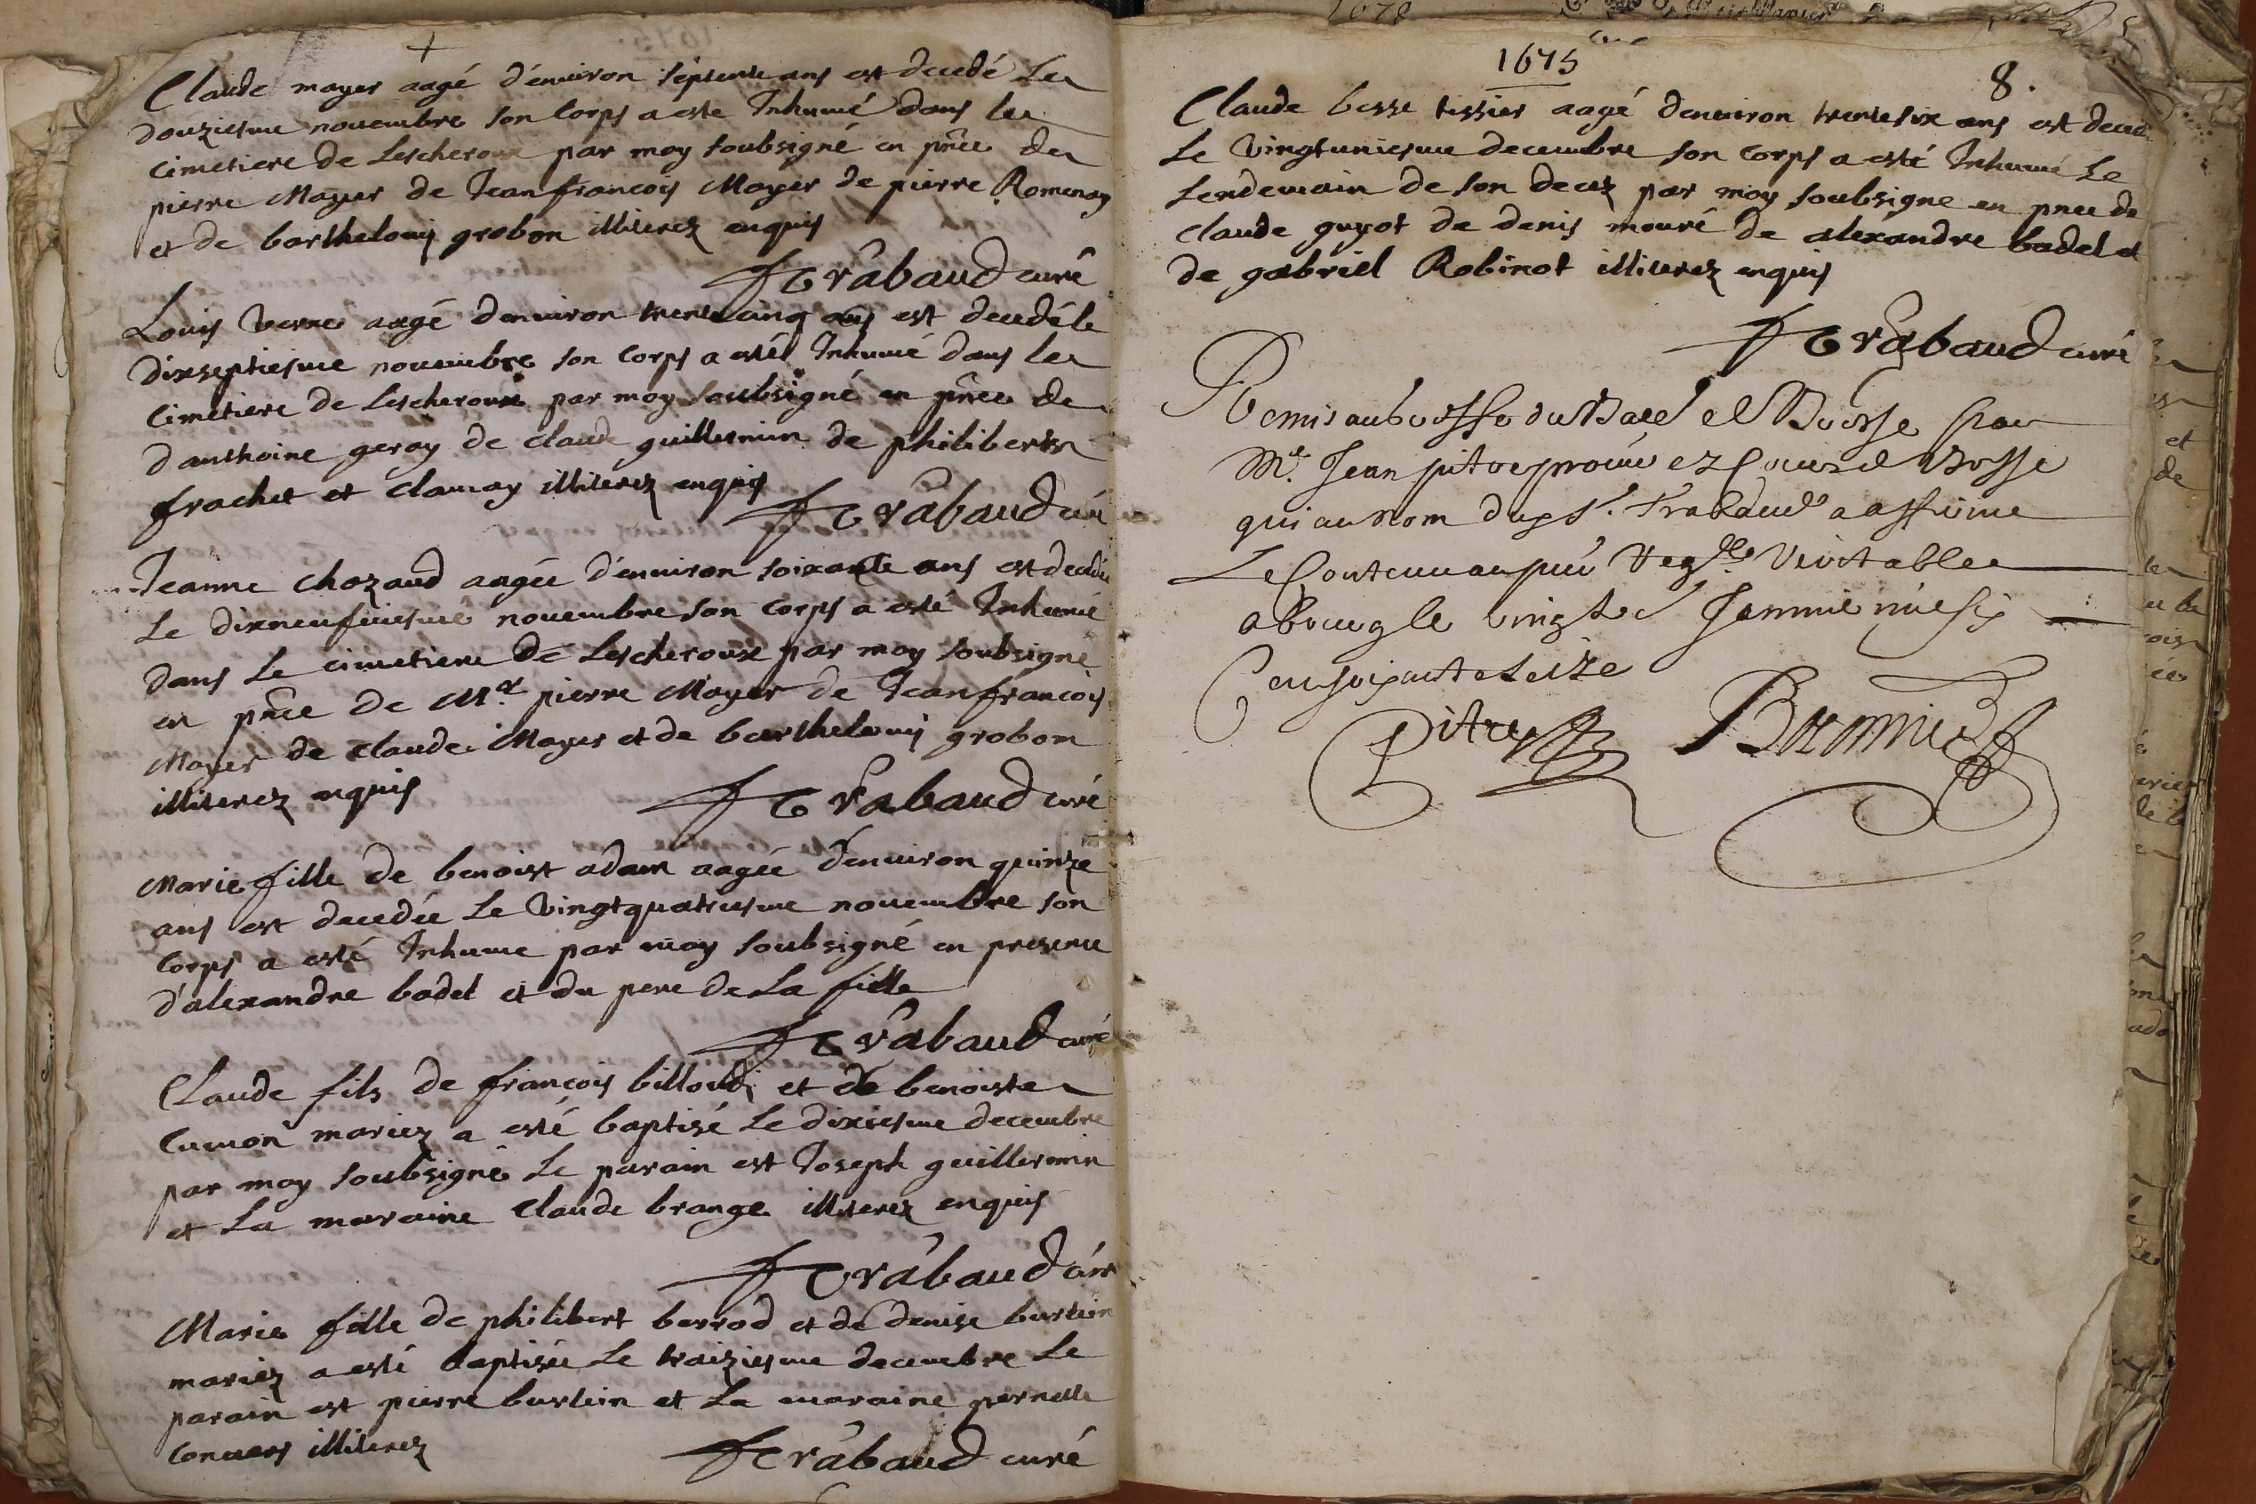 Claude mayer aagé d'enuiron septente ans est decedé Le
douziesme nouembre son Corps a este Inhumé dans le
Cimetiere de Lescheroux par moy soubsigné en pnce de
pierre Mayer de Jeanfrancois Mayer de pierre Romenay
et de barthelemy grobon illiterez enquis
Trabaud curé
Louis verne aagé denuiron trente cinq ans est decedé le
dixseptiesme nouembre son Corps a esté Inhumé dans le
Cimetiere de Lescheroux par moy soubsigné en pnce de
d'anthoine geray de claude guillermin de philiberte
frachet et clamay illiterez enquis
Trabaud curé
Jeanne chazaud aagée d'enuiron soixante ans est decedée
Le dixneufuiesme nouembre son Corps a esté Inhumé
dans Le cimetiere de Lescheroux par moy soubsigné
en pnce de Mre pierre Mayer de Jeanfrancois
Mayer de claude Mayer et de barthelemy grobon
illiterez enquis
Trabaud curé
Marie fille de benoist adam aagée d'enuiron quinze
ans est decedée Le vingtquatriesme nouembre son
Corps a esté Inhumé par moy soubsigné en presence
d'alexandre badel et du pere de La fille
Trabaud curé
Claude fils de francois billoud et de benoiste
Cumon mariez a esté baptisé Le dixiesme decembre
par moy soubsigné Le parain est Joseph guillermin
et La maraine Claude brange illiterez enquis
Trabaud curé
Marie fille de philibert berrod et de denise burtein
mariez a esté baptisée Le traiziesme decembre Le
parain est pierre burtein et La maraine pernette
Conuers illiterez
Trabaud curé
1675
8.
Claude besse tissier aagé denuiron trente six ans est decedé
Le vingtuniesme decembre son corps a esté Inhumé Le
Lendemain de son decez par moy soubsigne en pnce de
claude guyot de denis mouré de alexandre badel et
de gabriel Robinot illiterez enquis
Trabaud curé
Remis au Greffe du Bail de Bresse par
Me. Jean pitre ez Cours de Bresse
qui au nom dud Sr. Trabaud a affirmé
Le Contenu au pnt Reg.re Veritable
a Bourg le vingt Januie mil six
Cens soixante seize
Pitre